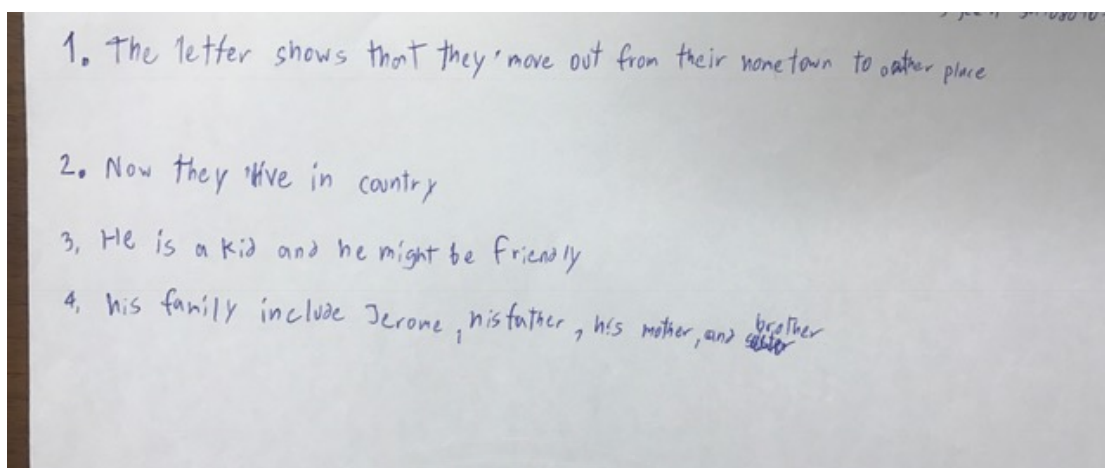 1. The letter shows that they move out from their hometown to oather place
2. Now they live in country
3, He is a kid and he might be friendly
4, his family include Jerome, his father, his mother, and brother